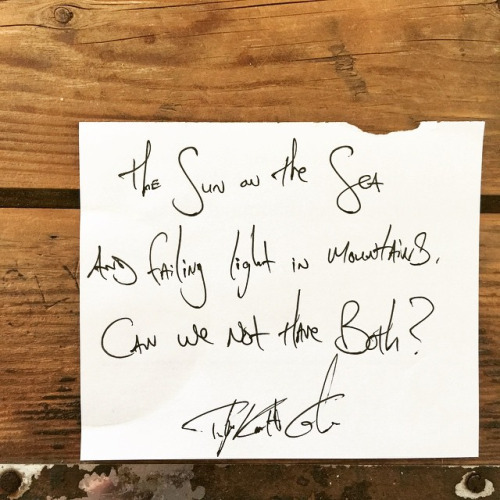 the Sun on the Sea
And failing light in mountains.
Can we not have Both?